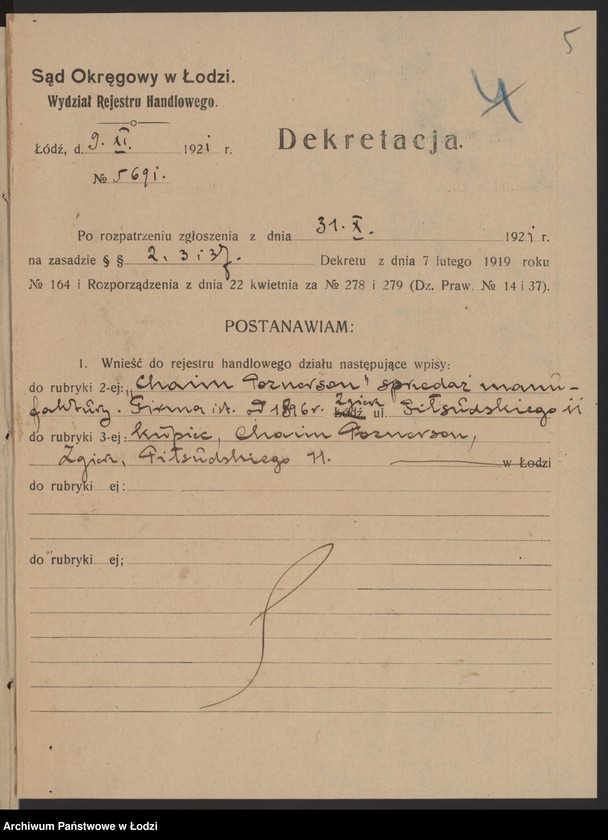 5
4
Sąd Okręgowy w Łodzi.
Wydział Rejestru Handlowego.
Łódź, d. 9. XI. 1921 r.
Dekretacja.
№ 5691.
Po rozpatrzeniu zgłoszenia z dnia 31. X. 1921 r.
na zasadzie § § 2, 3 i 37. Dekretu z dnia 7 lutego 1919 roku
№ 164 i Rozporządzenia z dnia 22 kwietnia za № 278 i 279 (Dz. Praw. № 14 i 37).
POSTANAWIAM:
1. Wnieść do rejestru handlowego działu następujące wpisy:
do rubryki 2-ej: "Chaim Poznerson" sprzedaż manu-
faktury. Firma ist. od 1896 r. Zgierz ul. Piłsudskiego 11
do rubryki 3-ej: kupiec, Chaim Poznerson,
Zgierz, Piłsudskiego 11. w Łodzi
do rubryki ej:
do rubryki ej;
Archiwum Państwowe w Łodzi